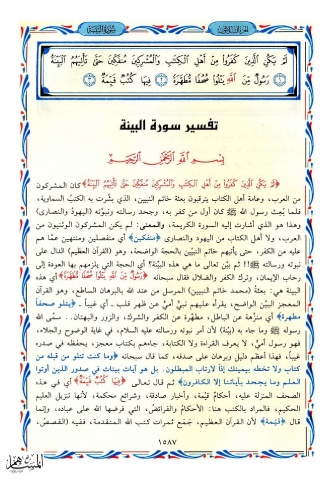 الجزء الثلاثون
سورة البينة
لَمْ يَكُنِ الَّذِينَ كَفَرُوا مِنْ أَهْلِ الْكِتَابِ وَالْمُشْرِكِينَ مُنفَكِّينَ حَتَّى تَأْتِيَهُمُ الْبَيِّنَةُ
١ رَسُولٌ مِنَ اللَّهِ يَتْلُوا صُحُفًا مُطَهَّرَةً ٢ فِيهَا كُتُبٌ قَيِّمَةٌ ٣
تفسير سورة البينة
بسم الله الرحمن الرحيم
﴿لَمْ يَكُنِ الَّذِينَ كَفَرُوا مِنْ أَهْلِ الْكِتَابِ وَالْمُشْرِكِينَ مُنفَكِّينَ حَتَّى تَأْتِيَهُمُ الْبَيِّنَةُ﴾ كان المشركون
من العرب، وعامة أهل الكتاب يترقبون بعثة خاتم النبيين، الذي بشرت به الكتبُ السماوية،
فلما بُعث رسول الله ﷺ كان أول من كفر به، وجحد رسالته ونبوّته (اليهودُ والنصارى)
وهذا هو الذي أشارت إليه السورة الكريمة، والمعنى: لم يكن المشركون الوثنيون من
العرب، ولا أهل الكتاب من اليهود والنصارى ﴿منفكين﴾ أي منفصلين ومنتهين عمّا هم
عليه من الكفر، حتى يأتيهم خاتم النبيّين بالحجة الواضحة، وهو (القرآن العظيم) الدال على
نبوته ورسالته ﷺ!! ثم بيّن تعالى ما هي هذه البيّنة؟ أي الحجة التي يلزمهم بها العودة إلى
رحاب الإيمان، وترك الكفر والضلال فقال سبحانه ﴿رَسُولٌ مِنَ اللَّهِ يَتْلُوا صُحُفًا مُطَهَّرَةً﴾ أي هذه
البينة هي: بعثةُ (محمد خاتم النبيين) المرسل من عند الله بالبرهان الساطع، وهو القرآن
المعجز البيّن الواضح، يقرأه عليهم نبيٌّ أميٌّ عن ظهر قلب ـ أي غيباً ـ ﴿يتلو صحفاً
مطهرة﴾ أي منزّهة عن الباطل، مطهّرة عن الكفر والشرك، والزور والبهتان.. سمّى الله
رسوله ﷺ وما جاء به (بيّنة) لأن أمر نبوته ورسالته عليه السلام، في غاية الوضوح والجلاء،
فهو رسول أميٌّ، لا يعرف القراءة ولا الكتابة، جاءهم بكتاب معجز، يحفظه في صدره
غيباً، فهذا أعظم دليل وبرهان على صدقه، كما قال سبحانه ﴿وما كنت تتلو من قبله من
كتاب ولا تخطه بيمينك إذاً لارتاب المبطلون. بل هو آيات بينات في صدور الذين أوتوا
العلم وما يجحد بآياتنا إلا الكافرون﴾ ثم قال تعالى ﴿فِيهَا كُتُبٌ قَيِّمَةٌ﴾ أي في هذه
الصحف المنزلة عليه، أحكامٌ قيمة، وأخبار صادقة، وشرائع محكمة، لأنها تنزيل العليم
الحكيم، فالمراد بالكتب هنا: الأحكامُ والفرائض، التي فرضها الله على عباده، وإنما
قال ﴿قيّمة﴾ لأن القرآن العظيم، جمع ثمرات كتب الله المتقدمة، ففيه (القصص،
١٥٨٧